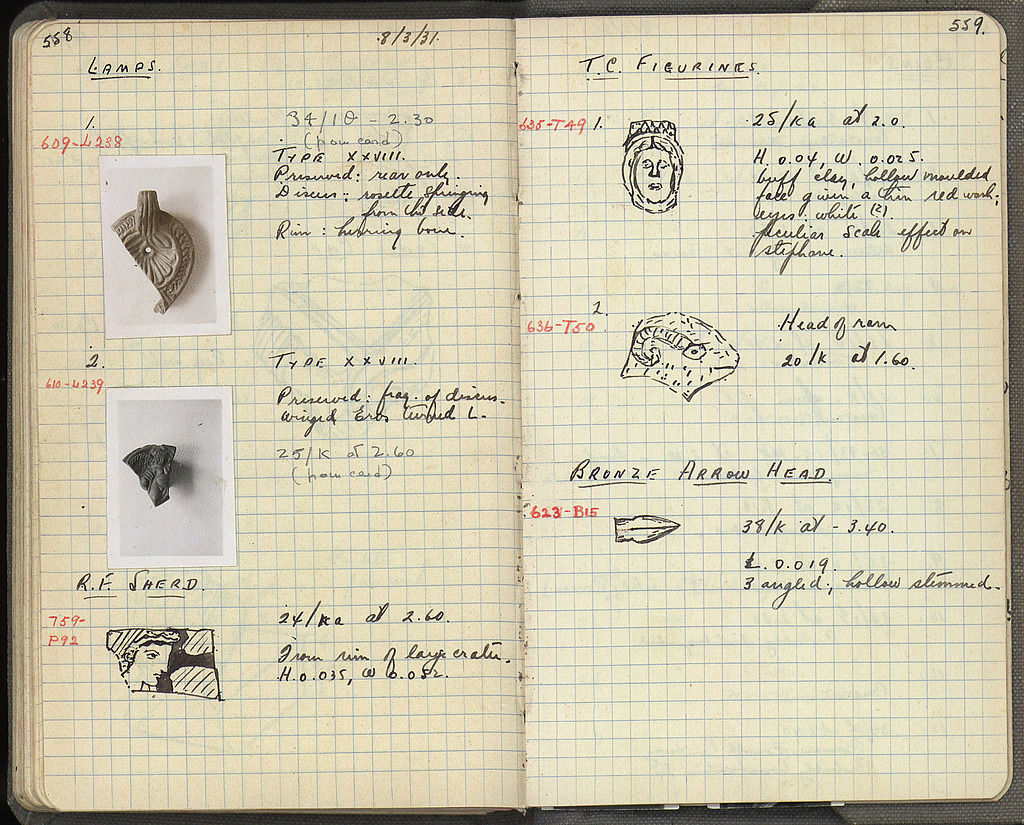 558
8/3/31.
LAMPS.
1.
609-L238
34/ΙΘ - 2.30
(from card)
TYPE XXVIII.
Preserved: rear only.
Discus: rosette springing
from the side.
Rim: herring bone.
2.
610-L239
TYPE XXVIII.
Preserved: frag. of discus.
Winged Eros turned L.
25/K at 2.60
(from card)
R.F. SHERD.
759-
P92
24/Ka at 2.60.
From rim of large crater.
H.0.035, W 0.052.
559.
T.C. FIGURINES.
635-T49 1.
25/Ka at 2.0.
H. 0.04, W. 0.025.
buff clay, hollow moulded
face given a thin red wash;
eyes: white (?)
peculiar scale effect on
stephane.
2.
636-T50
Head of ram
20/K at 1.60.
BRONZE ARROW HEAD.
623-B15
38/K at - 3.40.
L. 0.019.
3 angled; hollow stemmed.